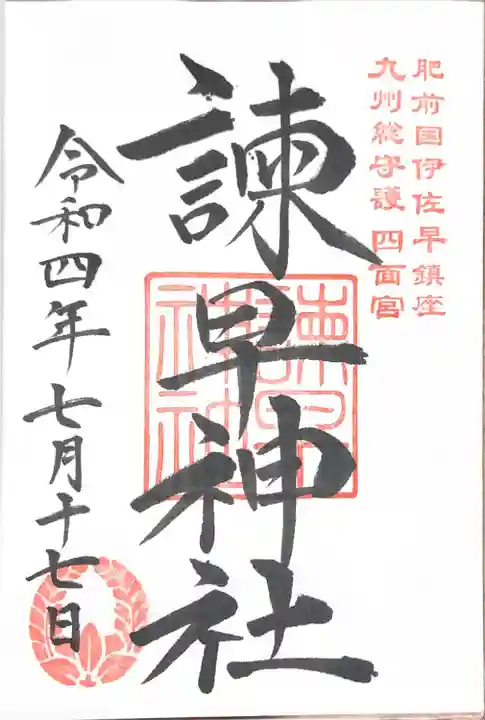 肥前国伊佐早鎮座
九州総守護 四面宮
諫早神社
諫早神社
令和四年七月十七日